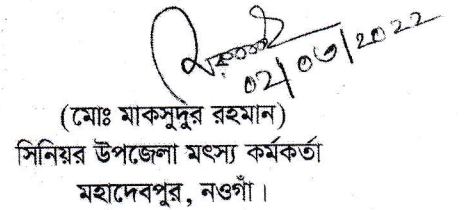 02/03/2022
(মোঃ মাকসুদুর রহমান)
সিনিয়র উপজেলা মৎস্য কর্মকর্তা
মহাদেবপুর, নওগাঁ।